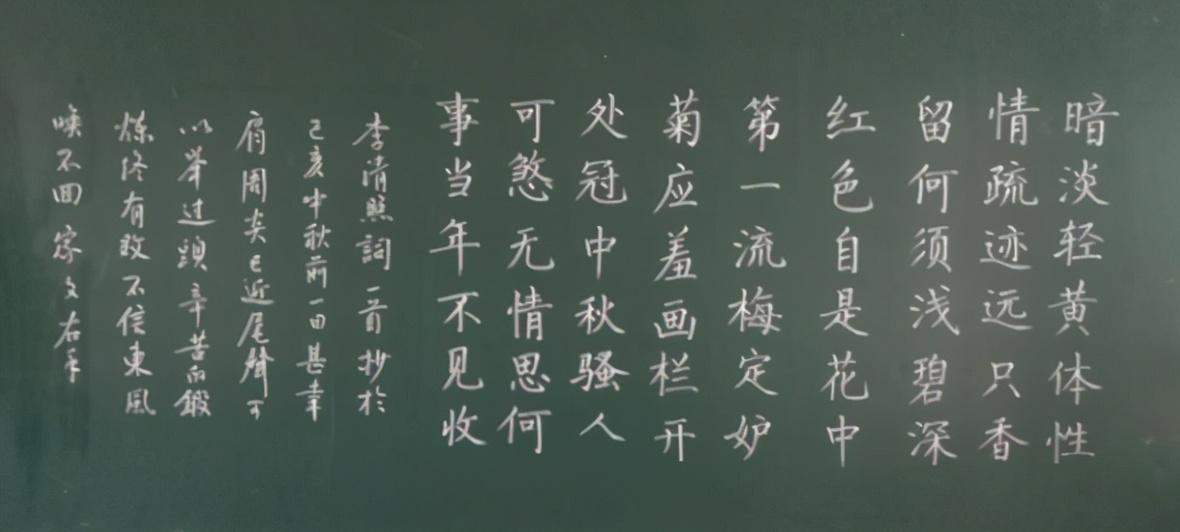 暗淡轻黄体性
情疏迹远只香
留何须浅碧深
红色自是花中
第一流梅定妒
菊应羞画栏开
处冠中秋骚人
可煞无情思何
事当年不见收
李清照詞一首抄於
己亥中秋前一日甚幸
肩周炎已近尾聲可
以举过頭辛苦的鍛
炼终有效不信東風
唤不回家文右手